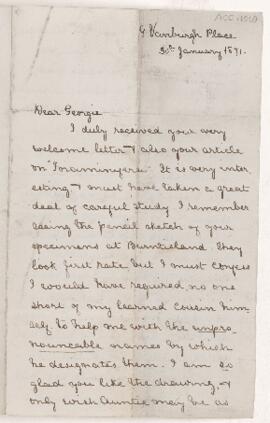 6 Vanburgh Place
30th January 1891.
Dear Georgie
I duly received your very
welcome letter & also your article
on "Foraminifera" It is very inter
esting & must have taken a great
deal of careful study I remember
seeing the pencil sketch of your
specimens at Burntisland. They
look first rate but I must confess
I would have required no one
short of my learned cousin him-
self to help me with the unpro-
nounceable names by which
he designates them. I am so
glad you like the drawing, &
only wish Auntie may be as